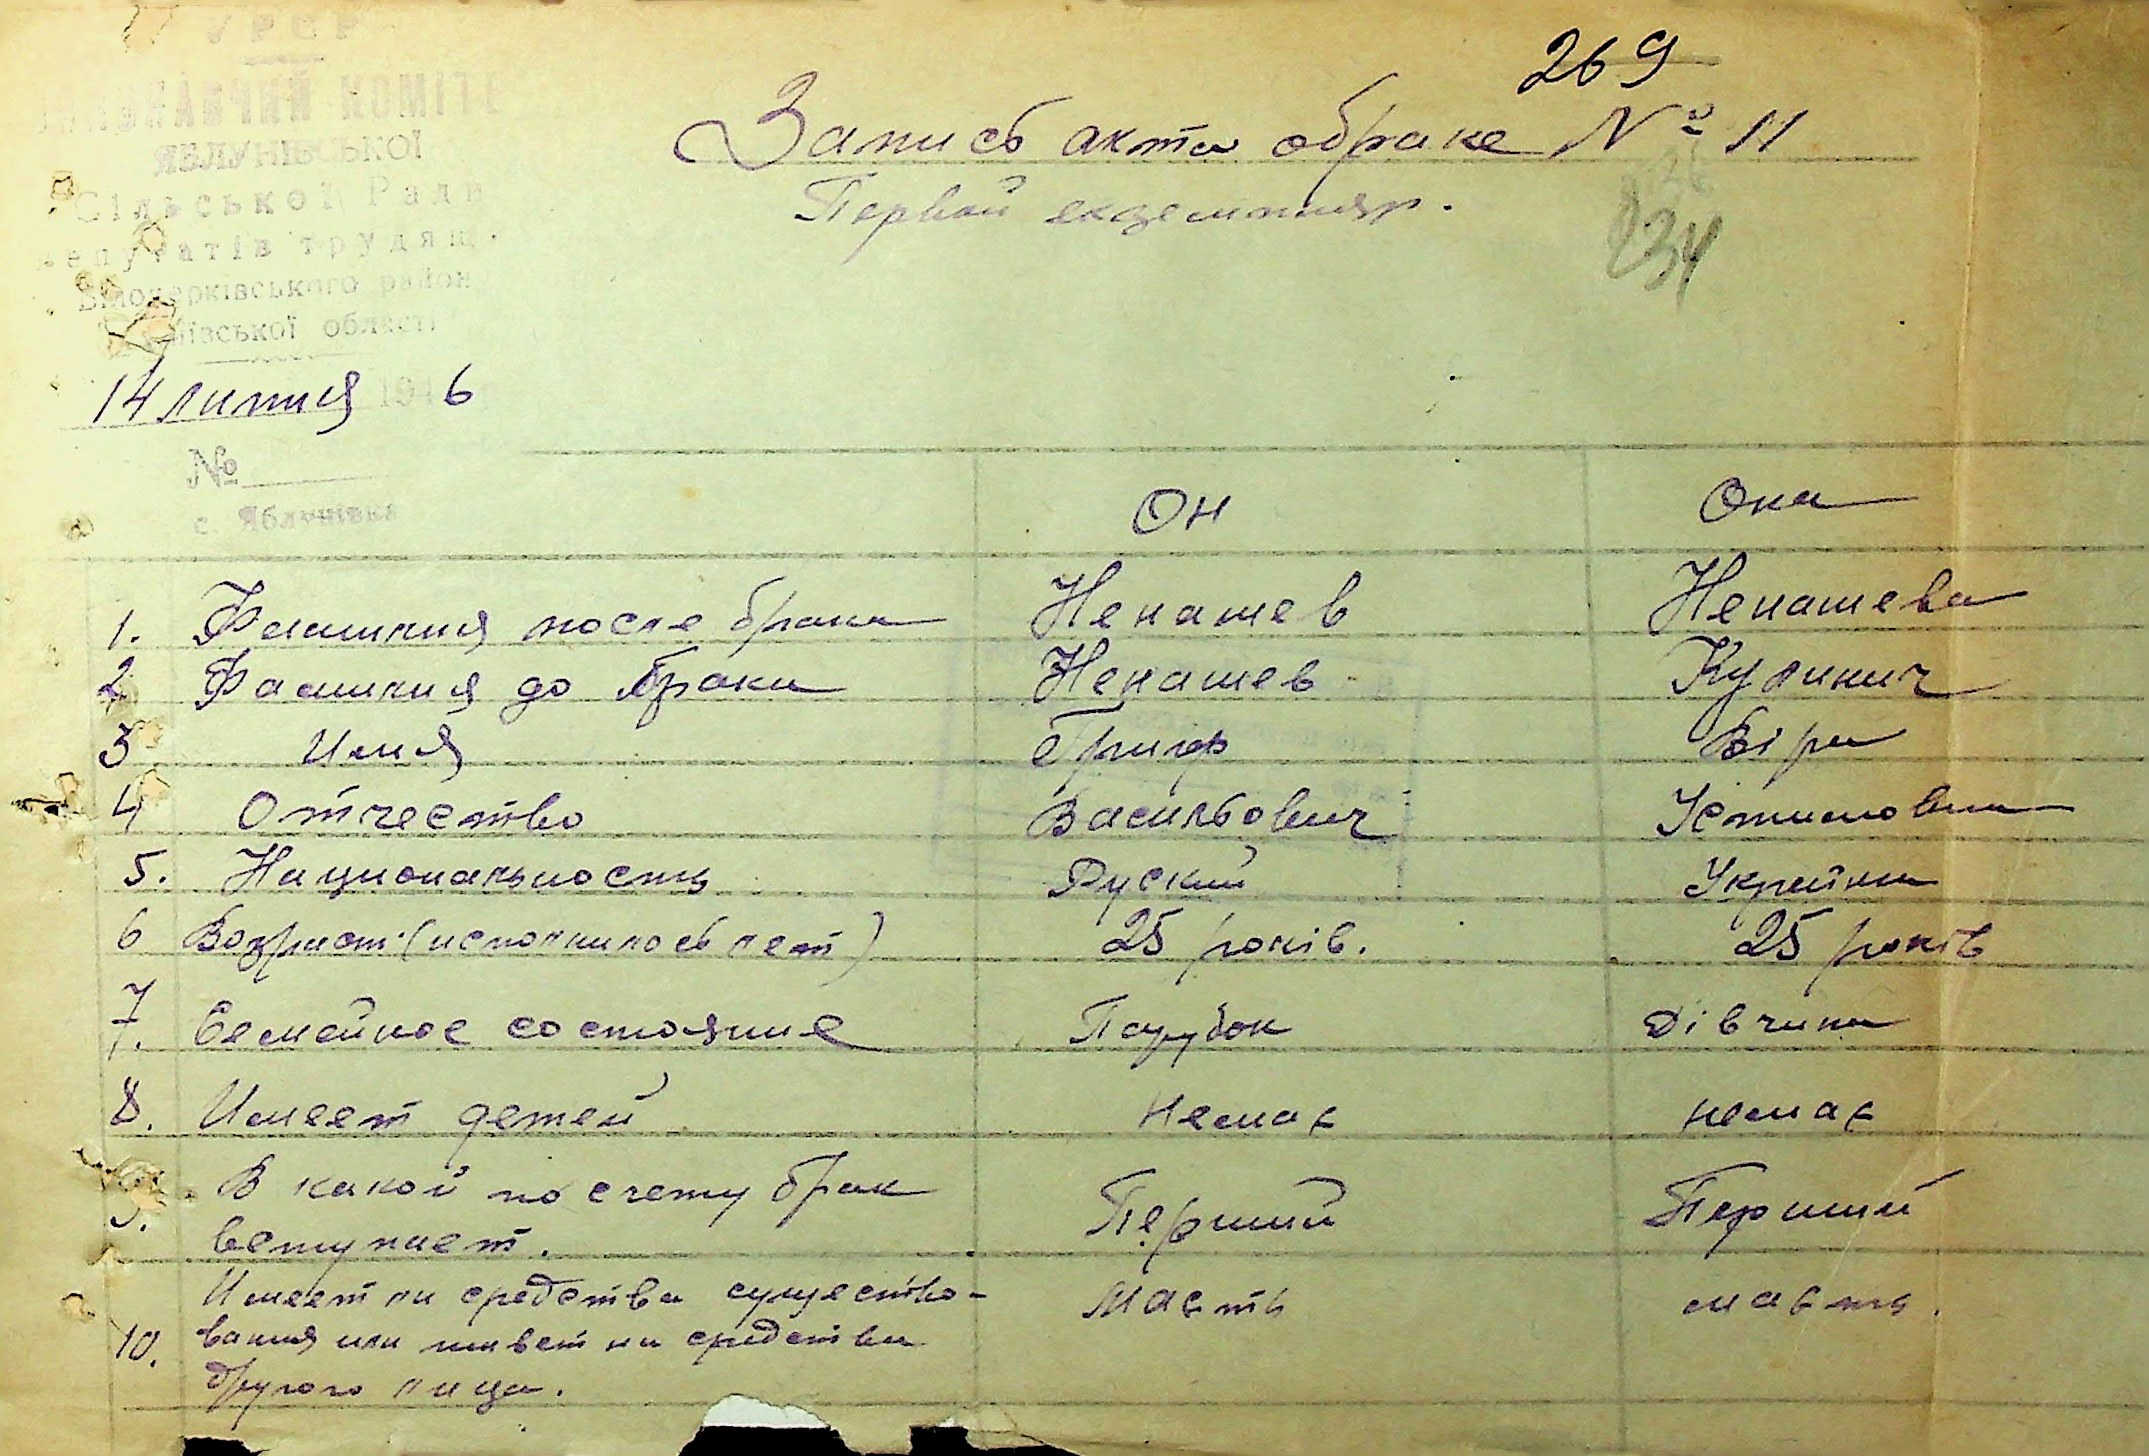 УРСР
ВИКОНАВЧИЙ КОМІТЕ
ЯБЛУНІВСЬКОЇ
Сільської Ради
депутатів трудящ.
Білоцерківського район
Київської області
14 липня 1946
№
с. Яблунівка
269
Запись акта о браке № 11
Первой екземпляр.
234
Он Она
1. Фамилия после брака Ненашев Ненашева
2 Фамилия до брака Ненашев Кулинич
3 Имя Григор Віра
4 Отчество Васильович Устимовна
5. Национальность Руский Українка
6 Возраст (исполнилось лет) 25 років. 25 років
7. Семейное состояние Парубок Дівчина
8. Имеет детей немає немає
9. В какой по счету брак
вступает. Перший Перший
Имеет ли средства существо- Маєть маєть.
10. вания или живет на средства
другого лица.